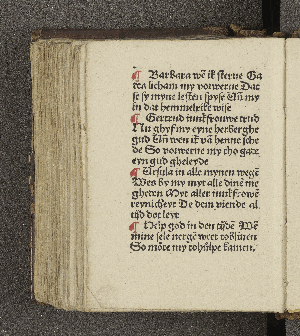 ¶ Barbara wē ik sterue Ga
tea licham my vorwerue Dat
se sy myne lesten spyse Un̄ my
in dat hemmelrike wise
¶ Gertrud iunkfrouwe
Nu ghyf my eyne herberghe
gud Un̄ wen ik vā henne sche
de So vorwerue my tho gate
eyn gud gheleyde
¶ Ursula in alle mynen wegē
Wes by my myt alle dinē me
gheren Myt aller iunkfrowē
reynicheyt De dem viende al
tijd
¶ Help god in den tijdē Wē
mine sele nergē weet
So mote my to hulpe kamen.